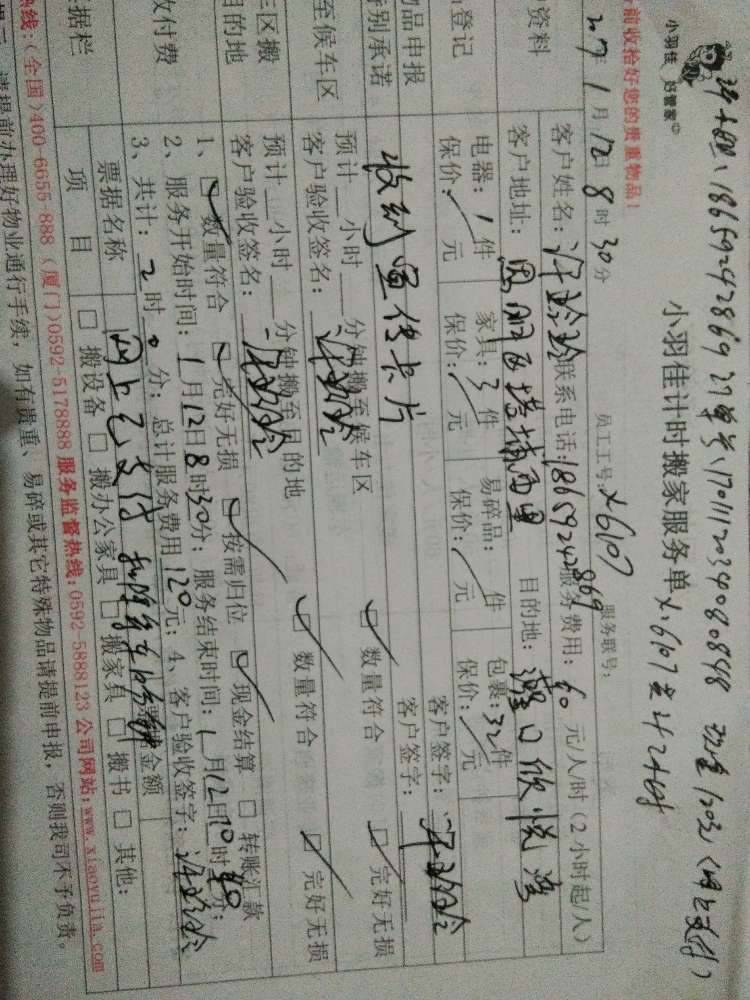 18659242869 订单号：170111203409080848 现金120元（网上支付）
小羽佳 好管家
小羽佳计时搬家服务单 X:6107
前收拾好您的贵重物品！
员工工号：X6107 服务联号：
2017年1月12日8时30分
资料 客户姓名： 联系电话：18659242869 服务费用：60元/人/时（2小时起/人）
客户地址： 西里 目的地： 欣悦湾
登记 电器：1件 家具：3件 易碎品： 件 包裹：32件
保价： 元 保价： 元 保价： 元 保价： 元
品申报 客户签字：
特别承诺 收到宣传卡片 客户签字：
至候车区 预计 小时 分钟搬至候车区 数量符合 完好无损
客户验收签名：
车区搬 预计 小时 分钟搬至目的地 数量符合 完好无损
目的地 客户验收签名：
1、数量符合 完好无损 按需归位 现金结算 转账汇款
收付费 2、服务开始时间：1月12日8时30分；服务结束时间：1月12日10时30分；
3、共计：2时0分；总计服务费用120元；4、客户验收签字：
据栏 票据名称 网上已支付 金额
项目 搬设备 搬办公家具 搬家具 搬书 其他：
热线：（全国）400-6655-888（厦门）0592-5178888 服务监督热线：0592-5888123 公司网站：www.xiaoyujia.com
请提前办理好物业通行手续，如有贵重、易碎或其它特殊物品请提前申报，否则我司不予负责。